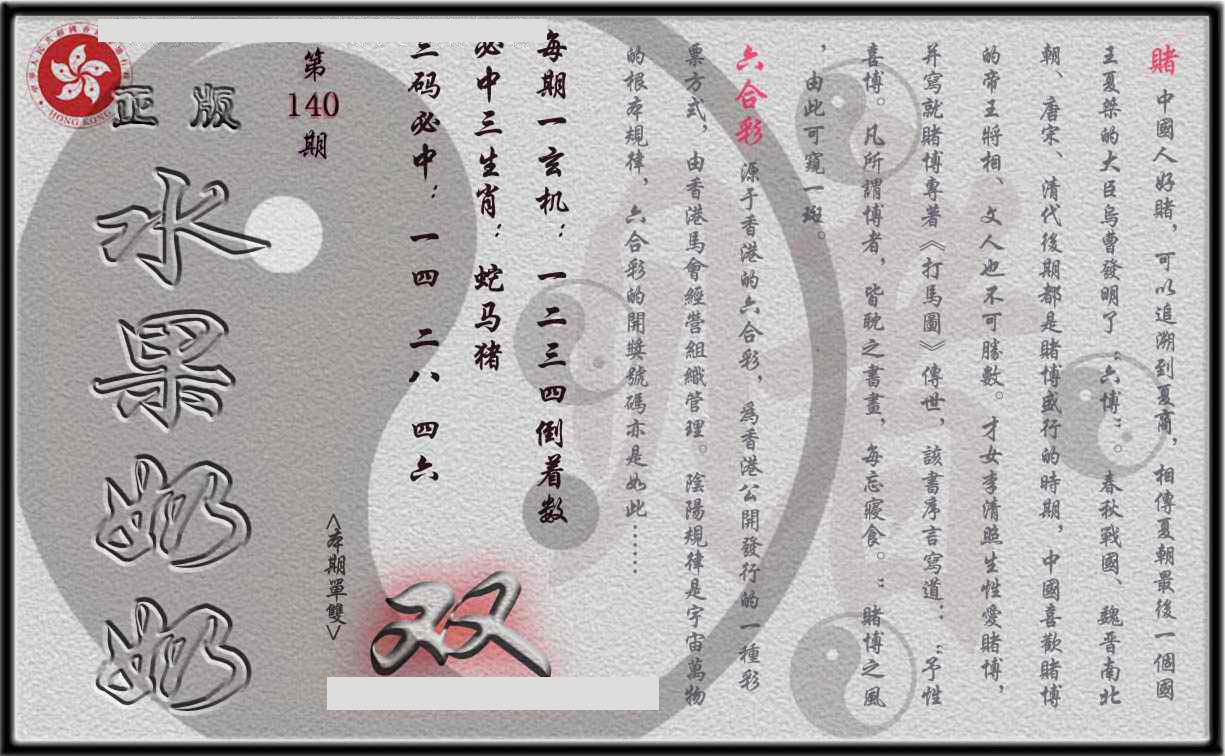 賭 中國人好賭，可以追溯到夏商，相傳夏朝最後一個國
王夏桀的大臣烏曹發明了“六博”。春秋戰國、魏晉南北
朝、唐宋、清代後期都是賭博盛行的時期，中國喜歡賭博
的帝王將相、文人也不可勝數。才女李清照生性愛賭博，
并寫就賭博專著《打馬圖》傳世，該書序言寫道：“予性
喜博。凡所謂博者，皆耽之書畫，每忘寢食。”賭博之風
，由此可窺一斑。
六合彩 源于香港的六合彩，為香港公開發行的一種彩
票方式，由香港馬會經營組織管理。陰陽規律是宇宙萬物
的根本規律，六合彩的開獎號碼亦是如此……
每期一玄机：一二三四倒着数
必中三生肖：蛇马猪
三码必中：一四 二八 四六
第
140
期
<本期單雙>
双
正版
水果奶奶
HONG KONG